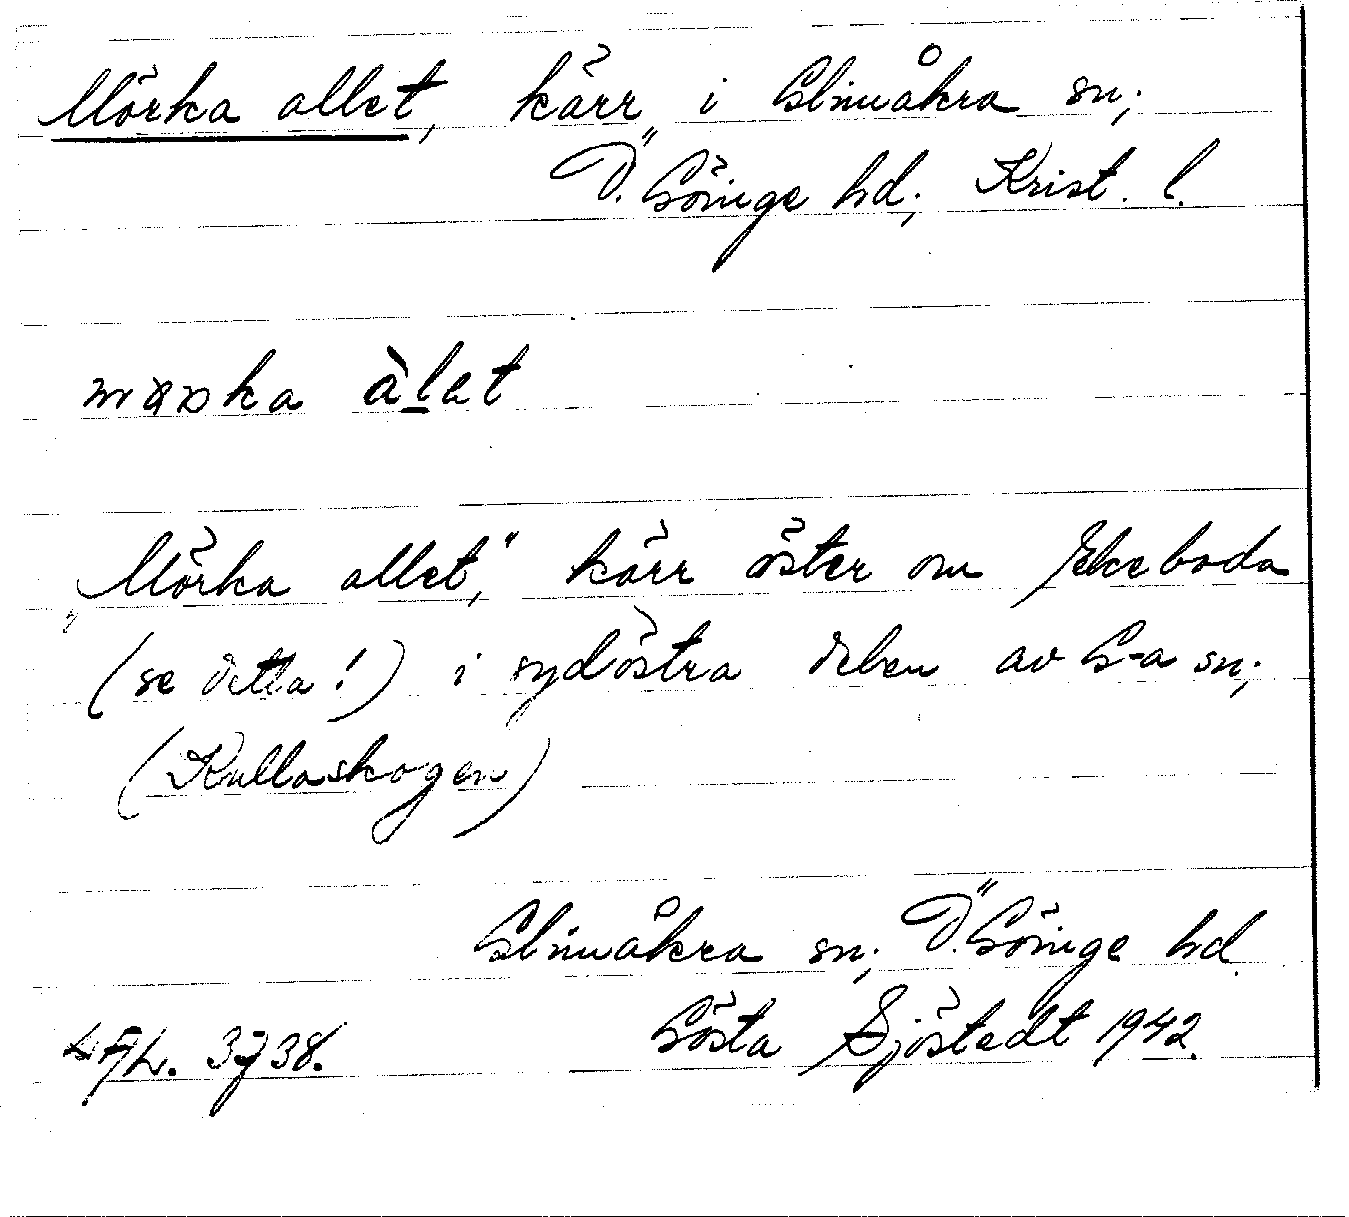 Mörka allet, kärr i Glimåkra sn;
Ö. Göinge hd; Krist. l.
àlet
"Mörka allet," kärr öster om Ekeboda
(se detta!) i sydöstra delen av G-a sn;
(Kullaskogen)
Glimåkra sn; Ö. Göinge hd.
Gösta Sjöstedt 1942.
LAL. 3738.